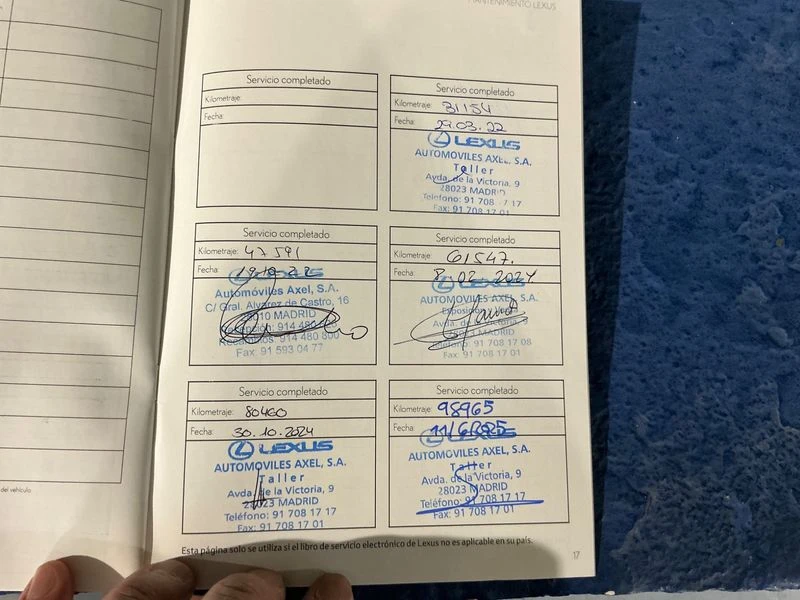 MANTENIMIENTO LEXUS
Servicio completado
Kilometraje:
Fecha:
Servicio completado
Kilometraje: 31154
Fecha: 29.03.22
LEXUS
AUTOMOVILES AXEL, S.A.
Taller
Avda. de la Victoria, 9
28023 MADRID
Teléfono: 91 708 17 17
Fax: 91 708 17 01
Servicio completado
Kilometraje: 47591
Fecha:
LEXUS
Automóviles Axel, S.A.
C/ Gral. Alvarez de Castro, 16
MADRID
Fax: 91 593 04 77
Servicio completado
Kilometraje: 61547.
Fecha: 8.02.2024
LEXUS
AUTOMOVILES AXEL, S.A.
Avda. de la Victoria, 9
MADRID
Teléfono: 91 708 17 08
Fax: 91 708 17 01
Servicio completado
Kilometraje: 80460
Fecha: 30.10.2024
LEXUS
AUTOMOVILES AXEL, S.A.
Taller
Avda. de la Victoria, 9
28023 MADRID
Teléfono: 91 708 17 17
Fax: 91 708 17 01
Servicio completado
Kilometraje: 98965
Fecha: 11/6/2025
LEXUS
AUTOMOVILES AXEL, S.A.
Taller
Avda. de la Victoria, 9
28023 MADRID
Teléfono: 91 708 17 17
Fax: 91 708 17 01
del vehículo
Esta página solo se utiliza si el libro de servicio electrónico de Lexus no es aplicable en su país.
17